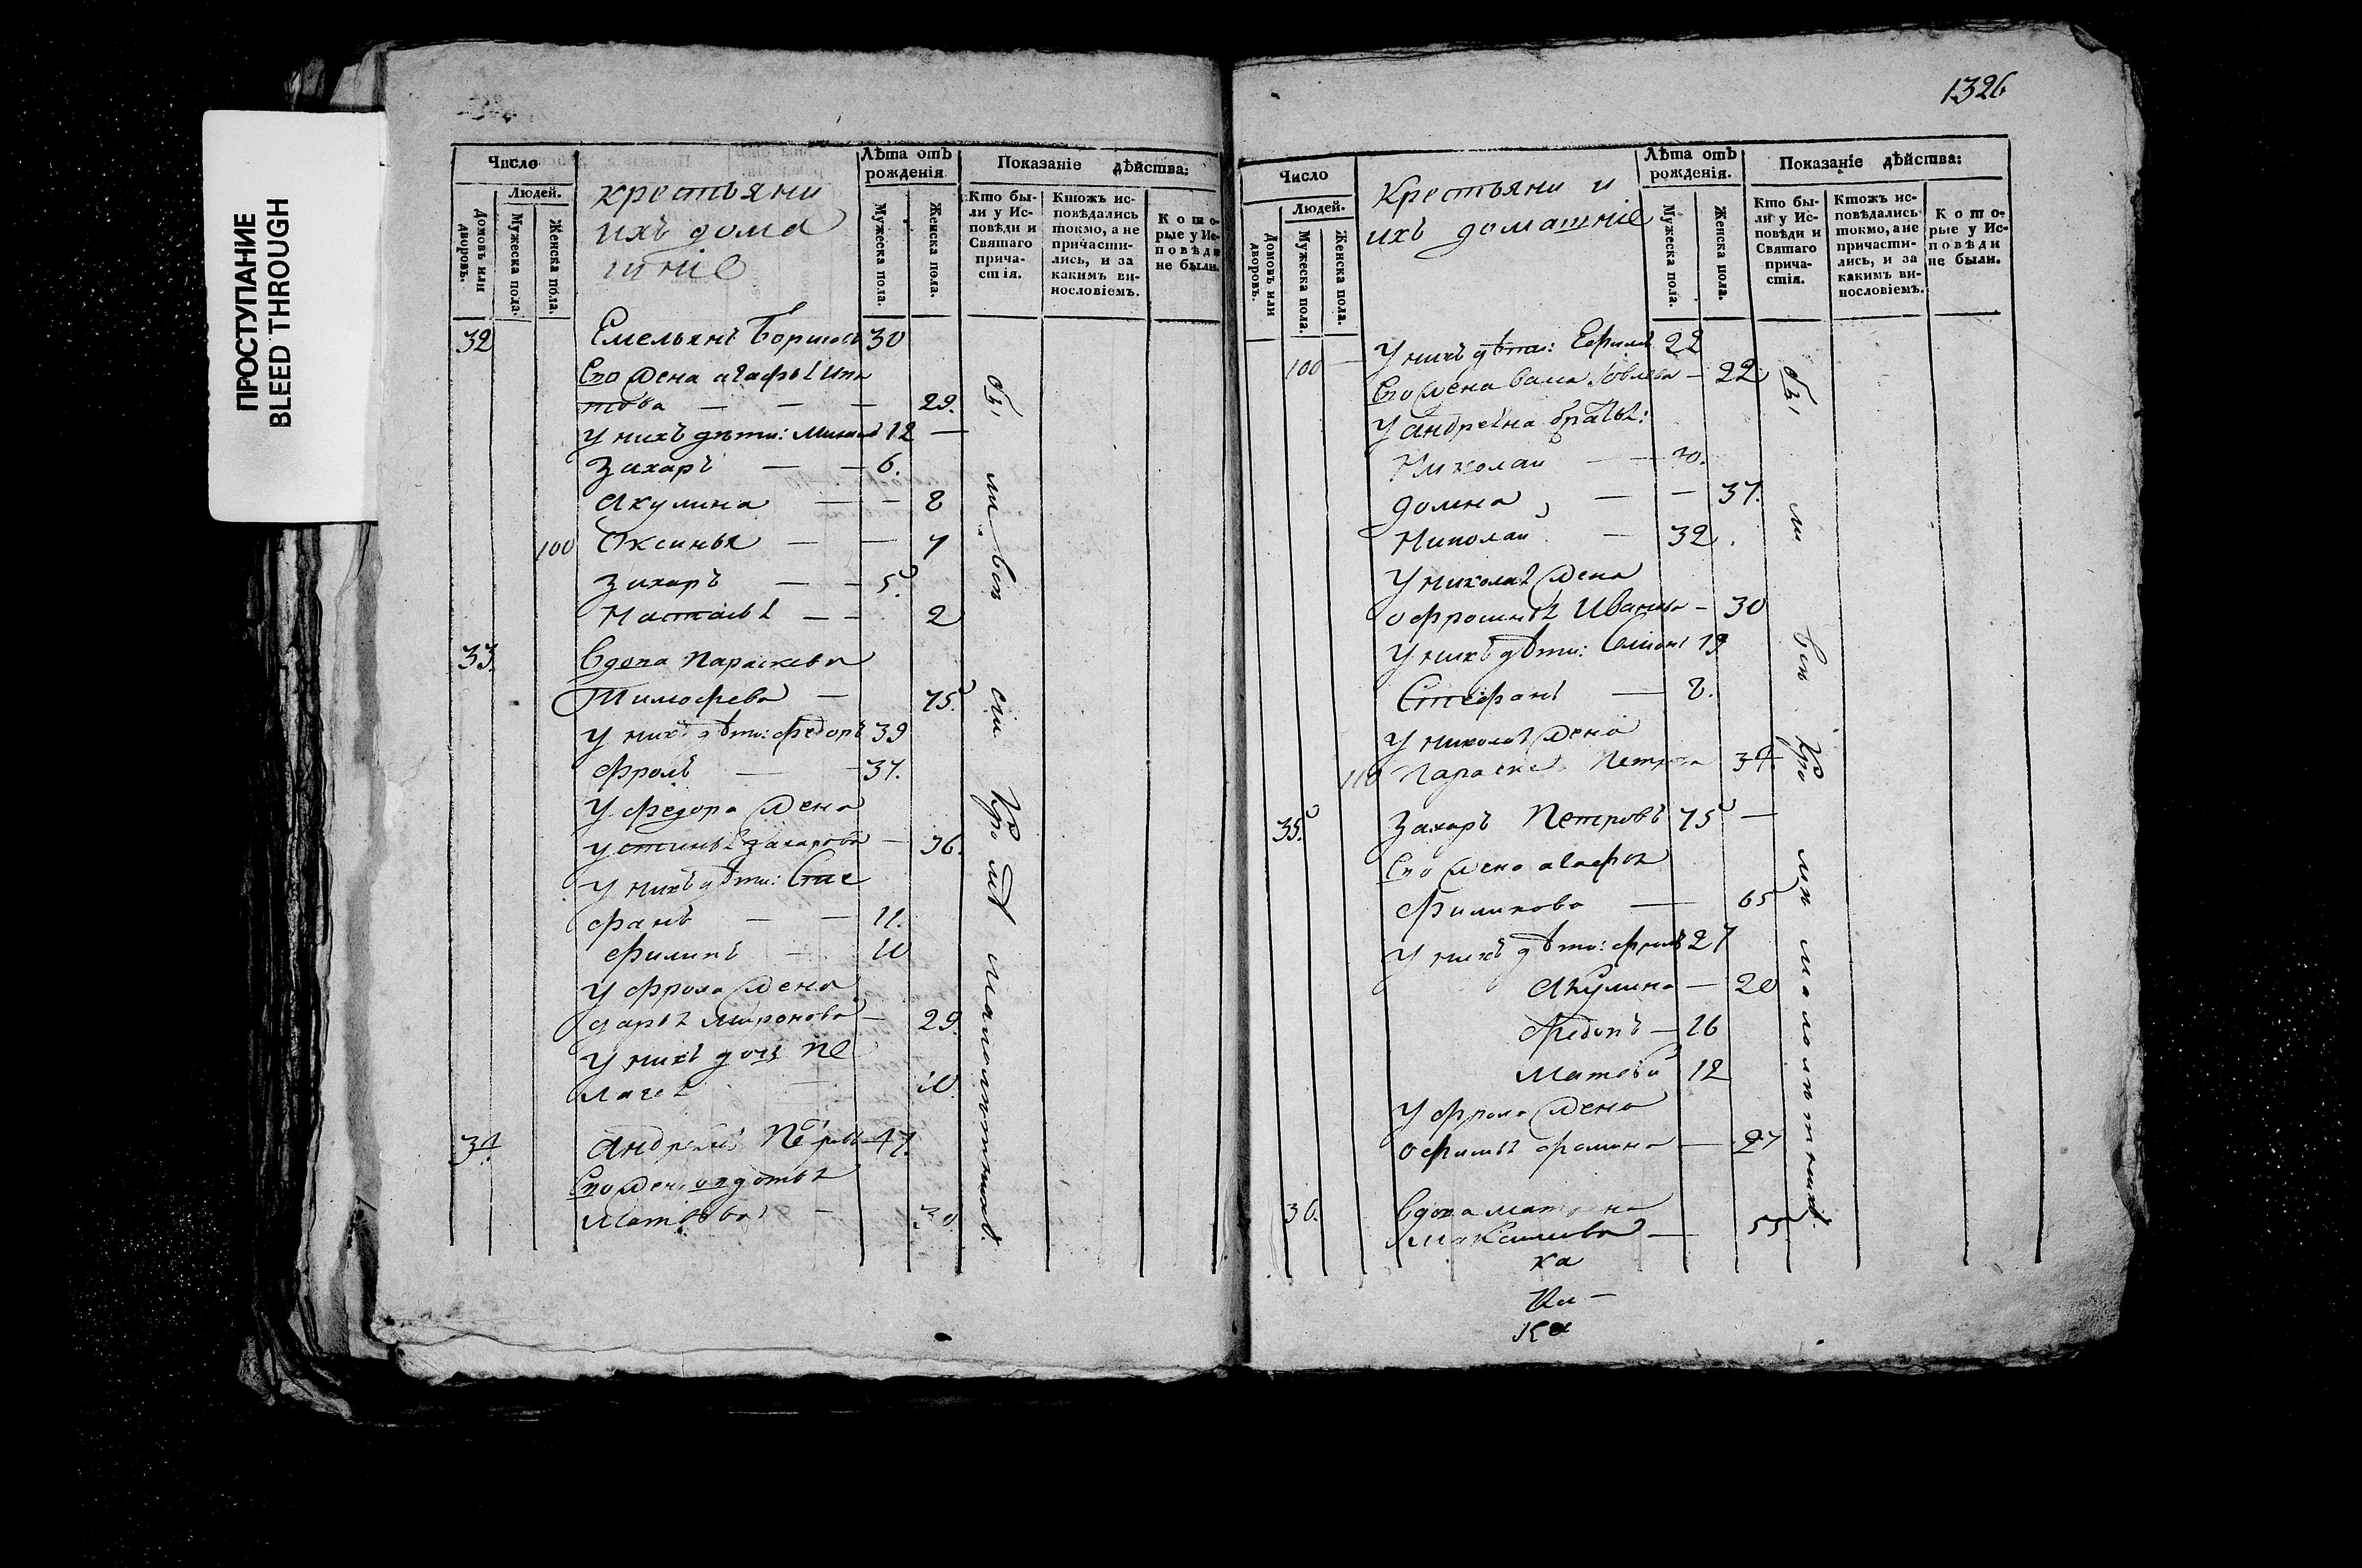 ПРОСТУПАНИЕ
BLEED THROUGH
Число
Людей.
Домовъ или дворовъ.
Мужеска пола.
Женска пола.
крестьяни
ихъ дома
шніе
Лѣта отъ рожденія
Мужеска пола.
Женска пола.
Показаніе дѣйства:
Кто были у Исповѣди и Святаго причастія.
Ктожъ исповѣдались токмо, а не причастились, и за какимъ винословіемъ.
Которые у Исповѣди не были.
32 Емельянъ 30
Его жена агафья
това — — — 29.
у нихъ дѣти: 12 —
Захаръ — — 6.
Акулина — — 8
100 Оксинья — — 7
Захаръ — — 5
Наталья — — 2
33. Вдова Параскева
Тимофева — 75.
у нихъ дѣти: Федоръ 39
Фролъ — 37.
у Федора жена
устинья Захарова — 36.
у нихъ дѣти: Сте
фанъ — — 11.
Филипъ — 10
у Фрола жена
дарья миронова — 29.
у нихъ дочь пе
лагея — 10.
34. андрей 47.
Его жена
Матвѣва — 30.
были всѣ
кромѣ малолѣтнихъ.
1326
Число
Людей.
Домовъ или дворовъ.
Мужеска пола.
Женска пола.
Крестьяни и
ихъ домашніе
Лѣта отъ рожденія.
Мужеска пола.
Женска пола.
Показаніе дѣйства:
Кто были у Исповѣди и Святаго причастія.
Ктожъ исповѣдались токмо, а не причастились, и за какимъ винословіемъ.
Которые у Исповѣди не были.
100 — у нихъ дѣти: Ефимъ 22
Его жена — 22
у андреяна братья:
Николай — —
домна — — 37.
Николай — 32.
у николая жена
офросинья Иванова — 30
у нихъ дѣти: 19
Стефанъ — 8.
у николая жена
110 Параске Петрова 34.
35. Захаръ Петровъ 75 —
Его жена агафья
Филипова — 65
у нихъ дѣти: Фролъ 27
Акулина — 20
Федотъ — 16
Матвѣй 12
у Фрола жена
офимья фомина — 27
36. Вдова матрена
Максимова — 55
ка
ка
были всѣ кромѣ малолѣтнихъ.